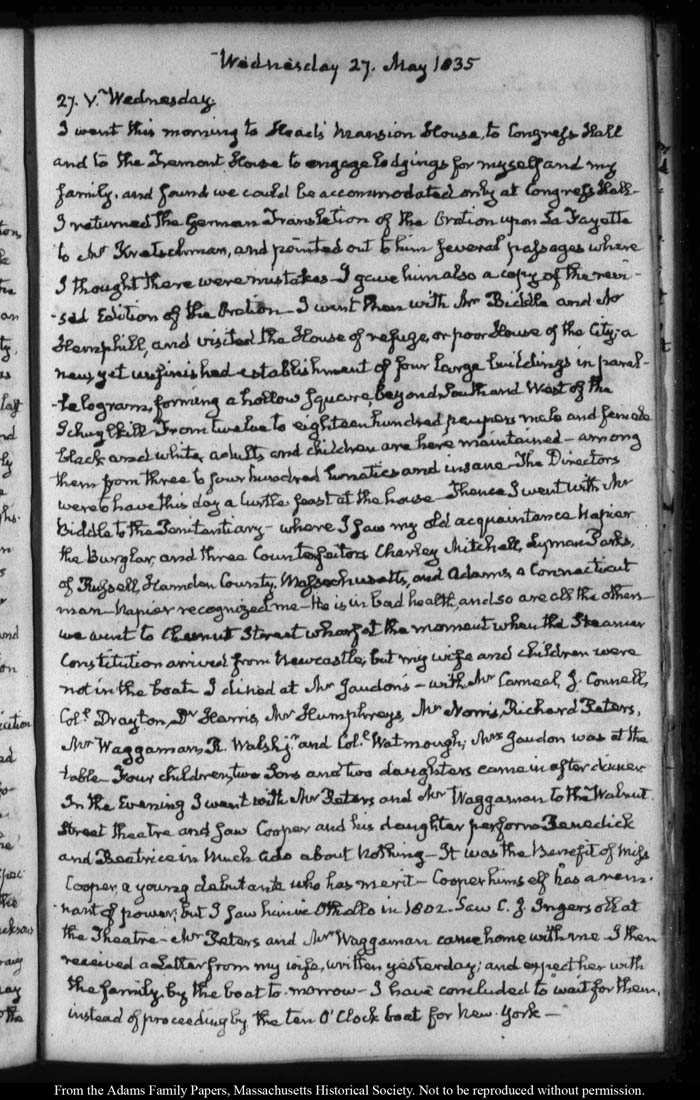 Wednesday 27. May 1835
27. V. Wednesday.
I went this morning to Head's Mansion House, to Congress Hall
and to the Tremont House to engage lodgings for myself and my
family, and found we could be accommodated only at Congress Hall-
I returned the German Translation of the Oration upon La Fayette
to Mr Kretschman, and pointed out to him several passages where
I thought there were mistakes- I gave him also a copy of the revi-
-sed Edition of the Oration- I went then with Mr Biddle and Mr
Hemphill, and visited the House of refuge, or poor House of the City; a
new, yet unfinished establishment of four large buildings in paral-
-lelogram, forming a hollow Square, beyond South and West of the
Schuylkill- From twelve to eighteen hundred paupers male and female
black and white, adults and children are here maintained- among
them from three to four hundred lunatics and insane- The Directors
were to have this day a turtle feast at the house- Thence I went with Mr
Biddle to the Penitentiary- where I saw my old acquaintance Napier
the Burglar, and three Counterfeitors Charley Mitchell, Lyman Parks,
of Russell, Hamden County, Massachusetts, and Adams, a Connecticut
man- Napier recognized me- He is in bad health, and so are all the others-
we went to Chesnut Street wharf at the moment when the Steamer
Constitution arrived from Newcastle, but my wife and children were
not in the boat- I dined at Mr Jaudon's- with Mr Carneal, J. Connell,
Col. Drayton, Dr Harris, Mr Humphreys, Mr Norris, Richard Peters,
Mr Waggaman, R. Walsh jr and Col. Watmough; Mrs Jaudon was at the
table- Four children, two Sons and two daughters came in after dinner
In the Evening I went with Mr Peters and Mr Waggaman to the Walnut
Street theatre and saw Cooper and his daughter perform Benedick
and Beatrice in Much Ado about Nothing- It was the Benefit of Miss
Cooper, a young debutante who has merit- Cooper himself has a rem-
nant of power; but I saw him in Othello in 1802. Saw C. J. Ingersoll at
the Theatre- Mr Peters and Mr Waggaman came home with me- I then
received a Letter from my wife, written yesterday; and expect her with
the family, by the boat to-morrow- I have concluded to wait for them,
instead of proceeding by the ten O'Clock boat for New-York-
From the Adams Family Papers, Massachusetts Historical Society. Not to be reproduced without permission.